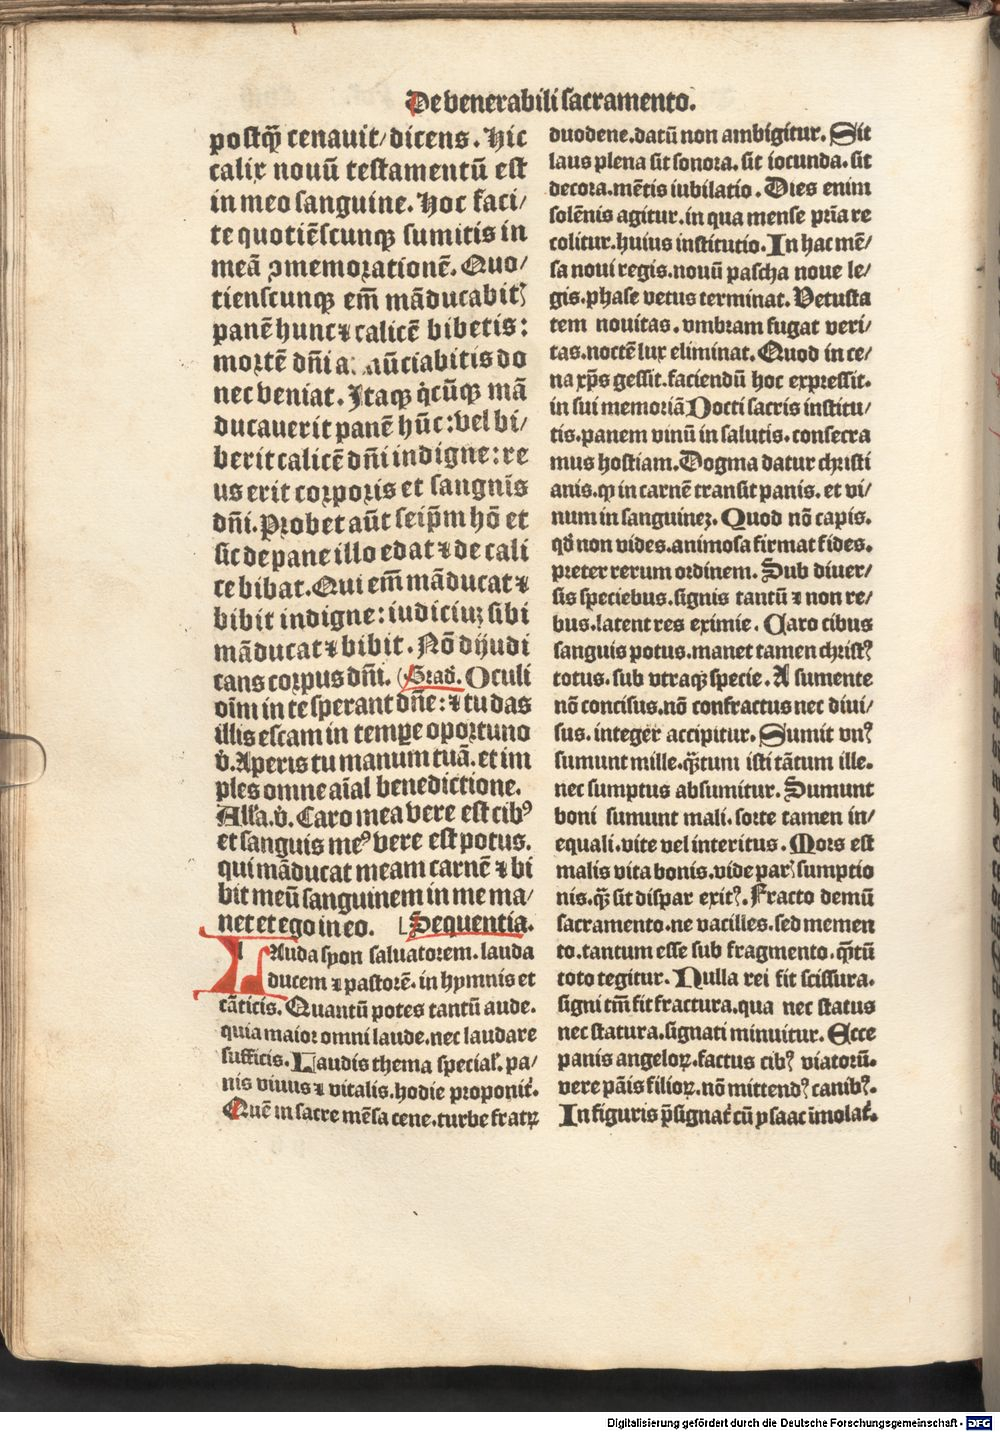 De venerabili sacramento.
postqꝫ̄ cenauit/ dicens. Hic
calix nouū testamentū est
in meo sanguine. Hoc faci/
te quotiēscunqꝫ sumitis in
meā ꝯmemorationē. Quo/
tienscunqꝫ em̄ māducabitꝭ
panē hunc ⁊ calicē bibetis:
mortē dn̄i a nūciabitis do
nec veniat. Itaqꝫ q̇cūqꝫ mā
ducauerit panē hūc: vel bi/
berit calicē dn̄i indigne: re
us erit corporis et sangnīs
dn̄i. Probet aūt seip̄m hō et
sic de pane illo edat ⁊ de cali
ce bibat. Qui em̄ māducat ⁊
bibit indigne: iudiciuꝫ sibi
māducat ⁊ bibit. Nō dijudi
cans corpus dn̄i. Grad̄. Oculi
oīm in te sperant dn̄e: ⁊ tu das
illis escam in tempe oportuno
v̇. Aperis tu manum tuā. et im
ples omne aīal benedictione.
Alla. v̇. Caro mea vere est cibꝰ
et sanguis meꝰ vere est potus.
qui māducat meam carnē ⁊ bi
bit meū sanguinem in me ma/
net et ego in eo. Sequentia.
Lauda syon saluatorem. lauda
ducem ⁊ pastorē. in hymnis et
cāticis. Quantū potes tantū aude.
quia maior omni laude. nec laudare
sufficis. Laudis thema special̓. pa/
nis viuus ⁊ vitalis. hodie proponit̓.
Quē in sacre mēsa cene. turbe fratꝝ
duodene. datū non ambigitur. Sit
laus plena sit sonora. sit iocunda. sit
decora. mētis iubilatio. Dies enim
solēnis agitur. in qua mense prīa re
colitur. huius institutio. In hac mē/
sa noui regis. nouū pascha noue le/
gis. phase vetus terminat. Vetusta
tem nouitas. vmbram fugat veri/
tas. noctē lux eliminat. Quod in ce/
na xp̄s gessit. faciendū hoc expressit.
in sui memoriā Docti sacris institu/
tis. panem vinū in salutis. consecra
mus hostiam. Dogma datur christi
anis. ꝙ in carnē transit panis. et vi/
num in sanguineꝫ. Quod nō capis.
qd̄ non vides. animosa firmat fides.
preter rerum ordinem. Sub diuer/
sis speciebus. signis tantū ⁊ non re/
bus. latent res eximie. Caro cibus
sanguis potus. manet tamen christꝰ
totus. sub vtraqꝫ specie. A sumente
nō concisus. nō confractus nec diui/
sus. integer accipitur. Sumit vnꝰ
sumunt mille. qꝫ̄tum isti tātum ille.
nec sumptus absumitur. Sumunt
boni sumunt mali. sorte tamen in/
equali. vite vel interitus. Mors est
malis vita bonis. vide parꝭ sumptio
nis. qꝫ̄ sit dispar exitꝰ. Fracto demū
sacramento. ne vacilles. sed memen
to. tantum esse sub fragmento. qꝫ̄tū
toto tegitur. Nulla rei fit scissura.
signi tm̄ fit fractura. qua nec status
nec statura. signati minuitur. Ecce
panis angeloꝝ. factus cibꝰ viatorū.
vere pāis filioꝝ. nō mittendꝰ canibꝰ.
In figuris p̄signat̓ cū ysaac īmolat̓.
Digitalisierung gefördert durch die Deutsche Forschungsgemeinschaft - DFG